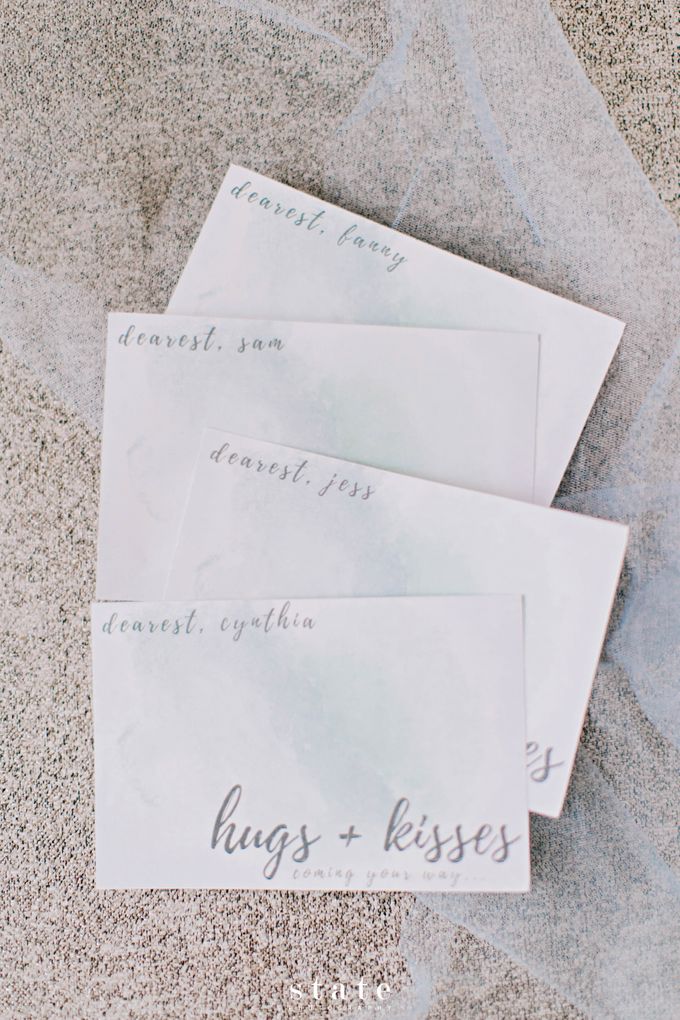 dearest, fanny
dearest, sam
dearest, jess
es
dearest, cynthia
hugs + kisses
coming your way...
state
PHOTOGRAPHY